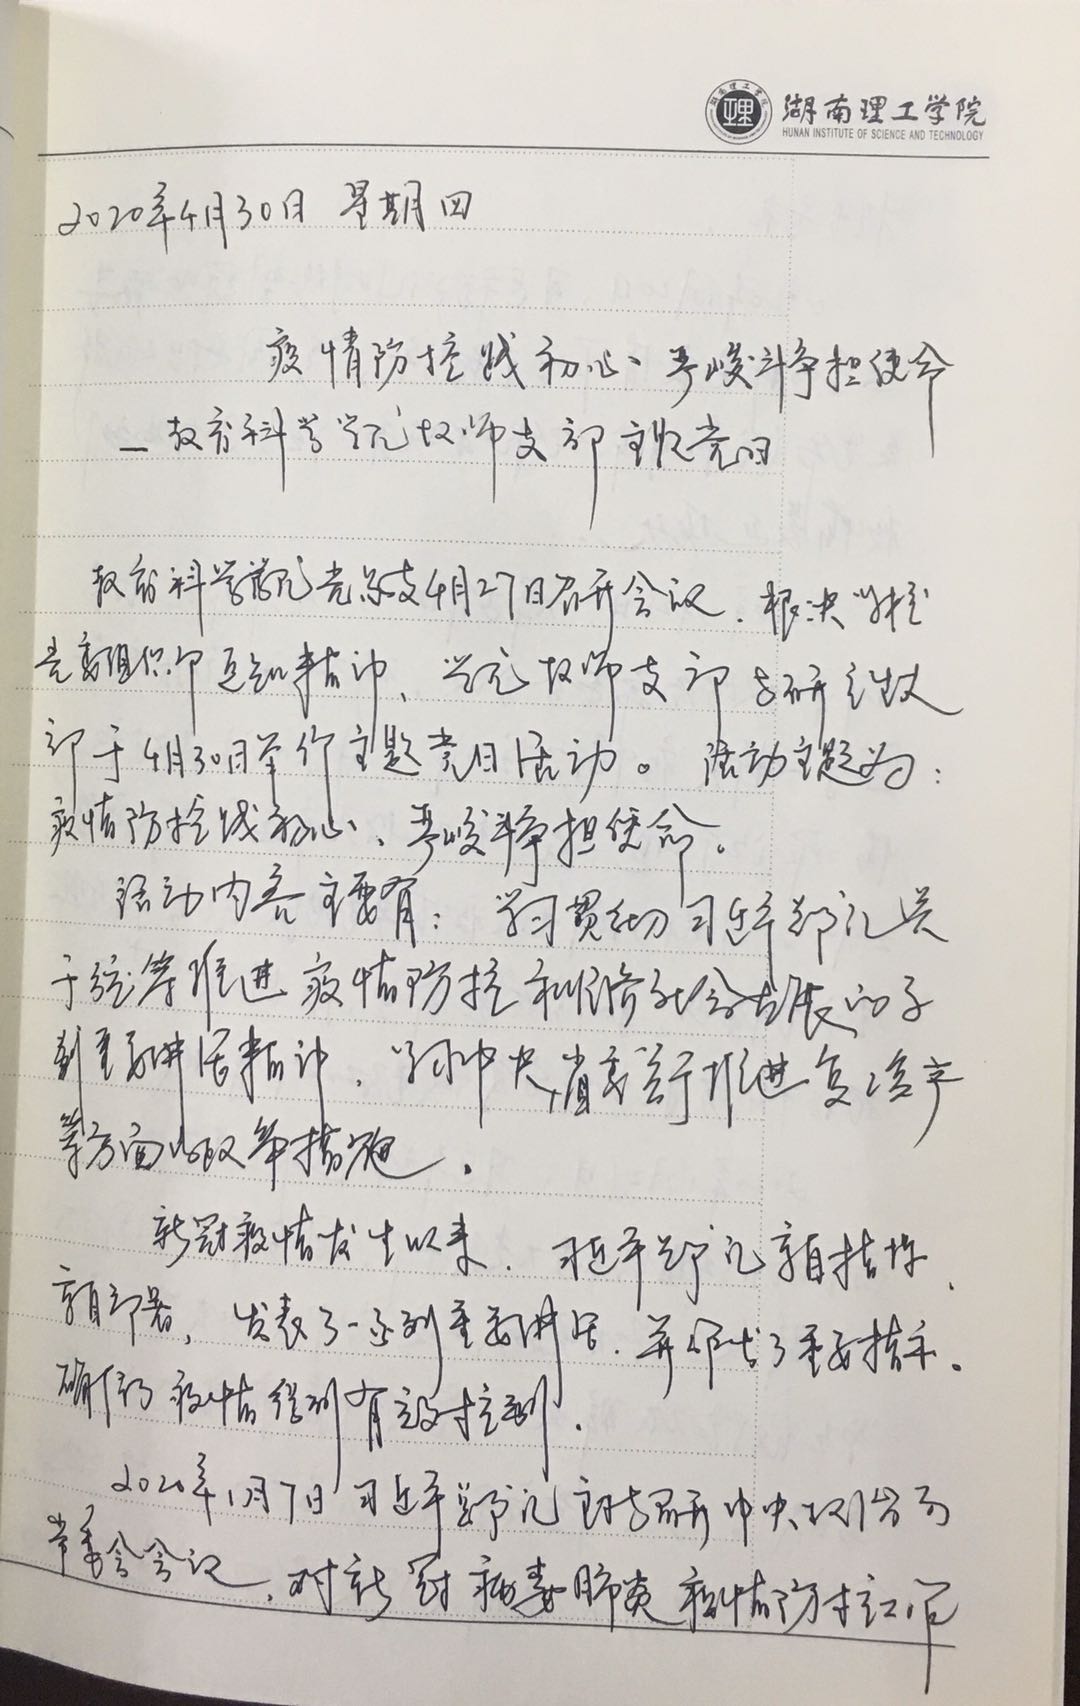 湖南理工学院
HUNAN INSTITUTE OF SCIENCE AND TECHNOLOGY
2020年4月30日 星期四
疫情防控践初心、严峻斗争担使命
—教育科学学院教师支部主题党日
教育科学学院党总支4月27日召开会议，根决学校
党委组织部通知精神，学院教师支部与研究生支
部于4月30日举行主题党日活动。活动主题为：
疫情防控践初心、严峻斗争担使命。
活动内容主要有：学习贯彻习近平总书记关
于统筹推进疫情防控和经济社会发展的系
列重要讲话精神，学习中央、省委关于推进复工复产
等方面的政策措施。
新冠疫情发生以来，习近平总书记亲自指挥、
亲自部署，发表了一系列重要讲话，并作出了重要指示。
确保疫情得到有效控制。
2020年1月7日习近平总书记主持召开中央政治局
常委会会议，对新冠病毒肺炎疫情防控工作